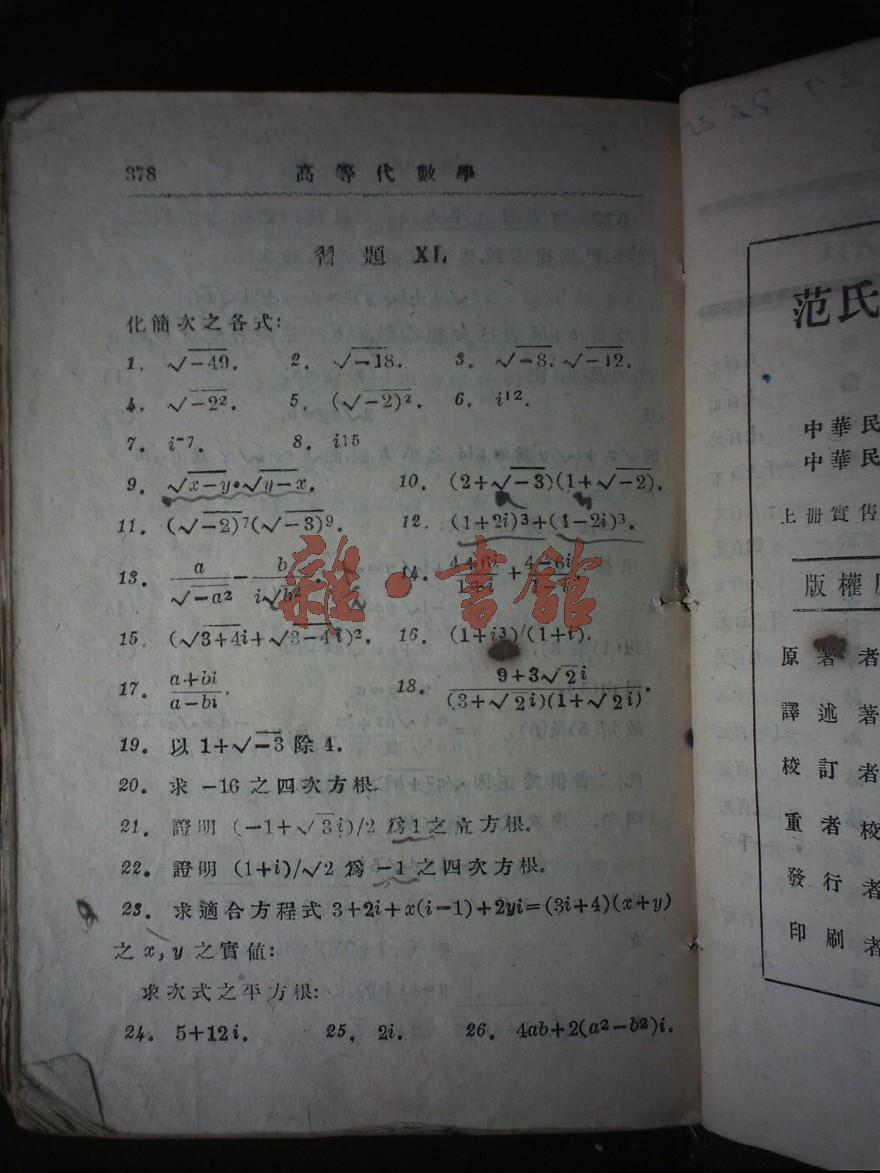 378 高等代數學
習題 XL
化簡次之各式:
1. √-49. 2. √-18. 3. √-8. √-12.
4. √-2². 5. (√-2)². 6. i¹².
7. i⁻⁷. 8. i¹⁵
9. √x-y•√y-x. 10. (2+√-3)(1+√-2).
11. (√-2)⁷(√-3)⁹. 12. (1+2i)³+(1-2i)³.
13. a/√-a² - b/i√b² 14. 4+6i/1+i + 4-6i
15 (√3+4i+√3-4i)². 16. (1+i³)/(1+i).
17. a+bi/a-bi. 18. 9+3√2i/(3+√2i)(1+√2i).
19. 以 1+√-3 除 4.
20. 求 -16 之四次方根.
21. 證明 (-1+√3i)/2 爲 1 之立方根。
22. 證明 (1+i)/√2 爲 -1 之四次方根。
23. 求適合方程式 3+2i+x(i-1)+2yi=(3i+4)(x+y)
之 x, y 之實值:
求次式之平方根:
24. 5+12i. 25. 2i. 26. 4ab+2(a²-b²)i.
雜·書館
范氏
中華民
中華民
上册實售
版權
原著者
譯述著
校訂者
重者校
發行者
印刷者